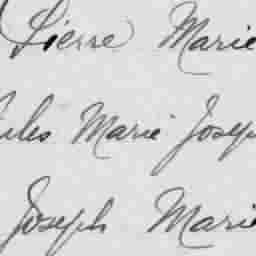 Pierre Marie
Jules Marie Joseph
Joseph Marie